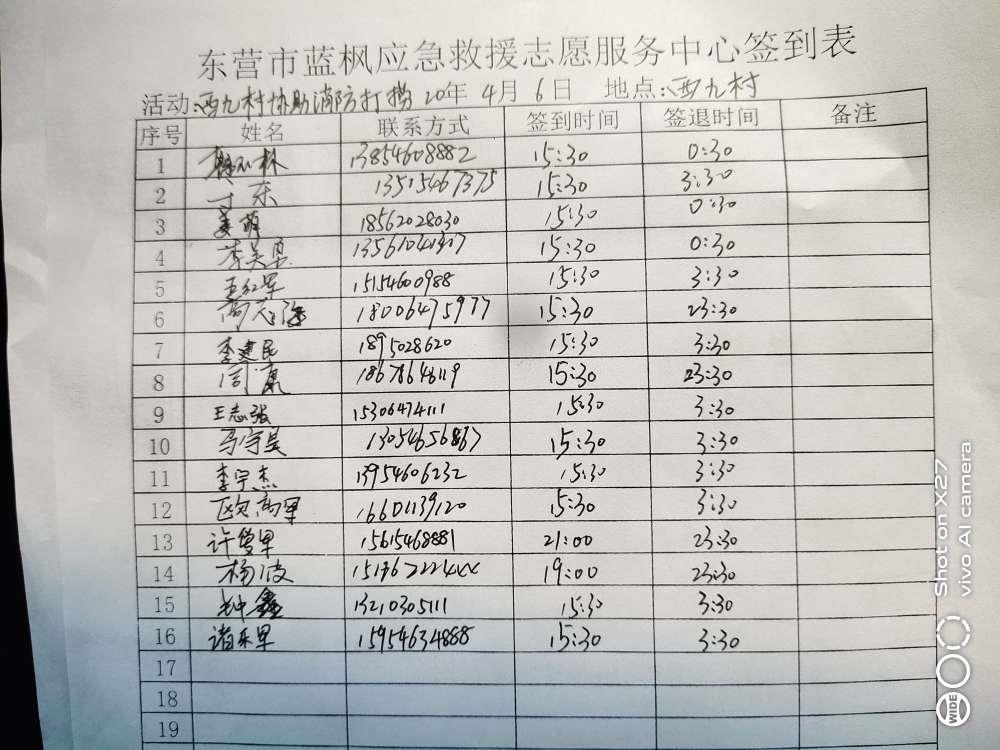 东营市蓝枫应急救援志愿服务中心签到表
活动:西九村协助消防打捞 20年 4月 6日 地点:西九村
序号 姓名 联系方式 签到时间 签退时间 备注
1 13854608882 15:30 0:30
2 东 13515467375 15:30 3:30
3 姜萌 18562028030 15:30 0:30
4 15:30 0:30
5 王红军 15154600988 15:30 3:30
6 18006475977 15:30 23:30
7 李建民 1895028620 15:30 3:30
8 周赢 18678648119 15:30 23:30
9 王志强 15306474111 15:30 3:30
10 马宇昊 13054656867 15:30 3:30
11 李宁杰 13954606232 15:30 3:30
12 16601139120 15:30 3:30
13 15615468881 21:00 23:30
14 杨波 19:00 23:30
15 钟鑫 13210305111 15:30 3:30
16 15954634888 15:30 3:30
17
18
19
Shot on X27
vivo AI camera
WIDE